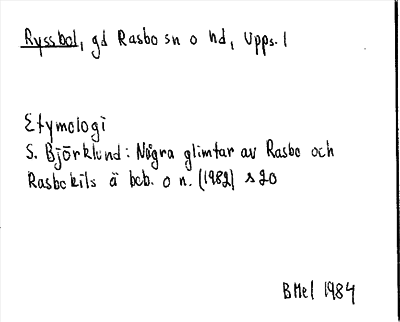 Ryssbol, gd Rasbo sn o hd, Upps. l
Etymologi
S. Björklund: Några glimtar av Rasbo och
Rasbokils ä beb. o n. (1982) s 20
BMel 1984